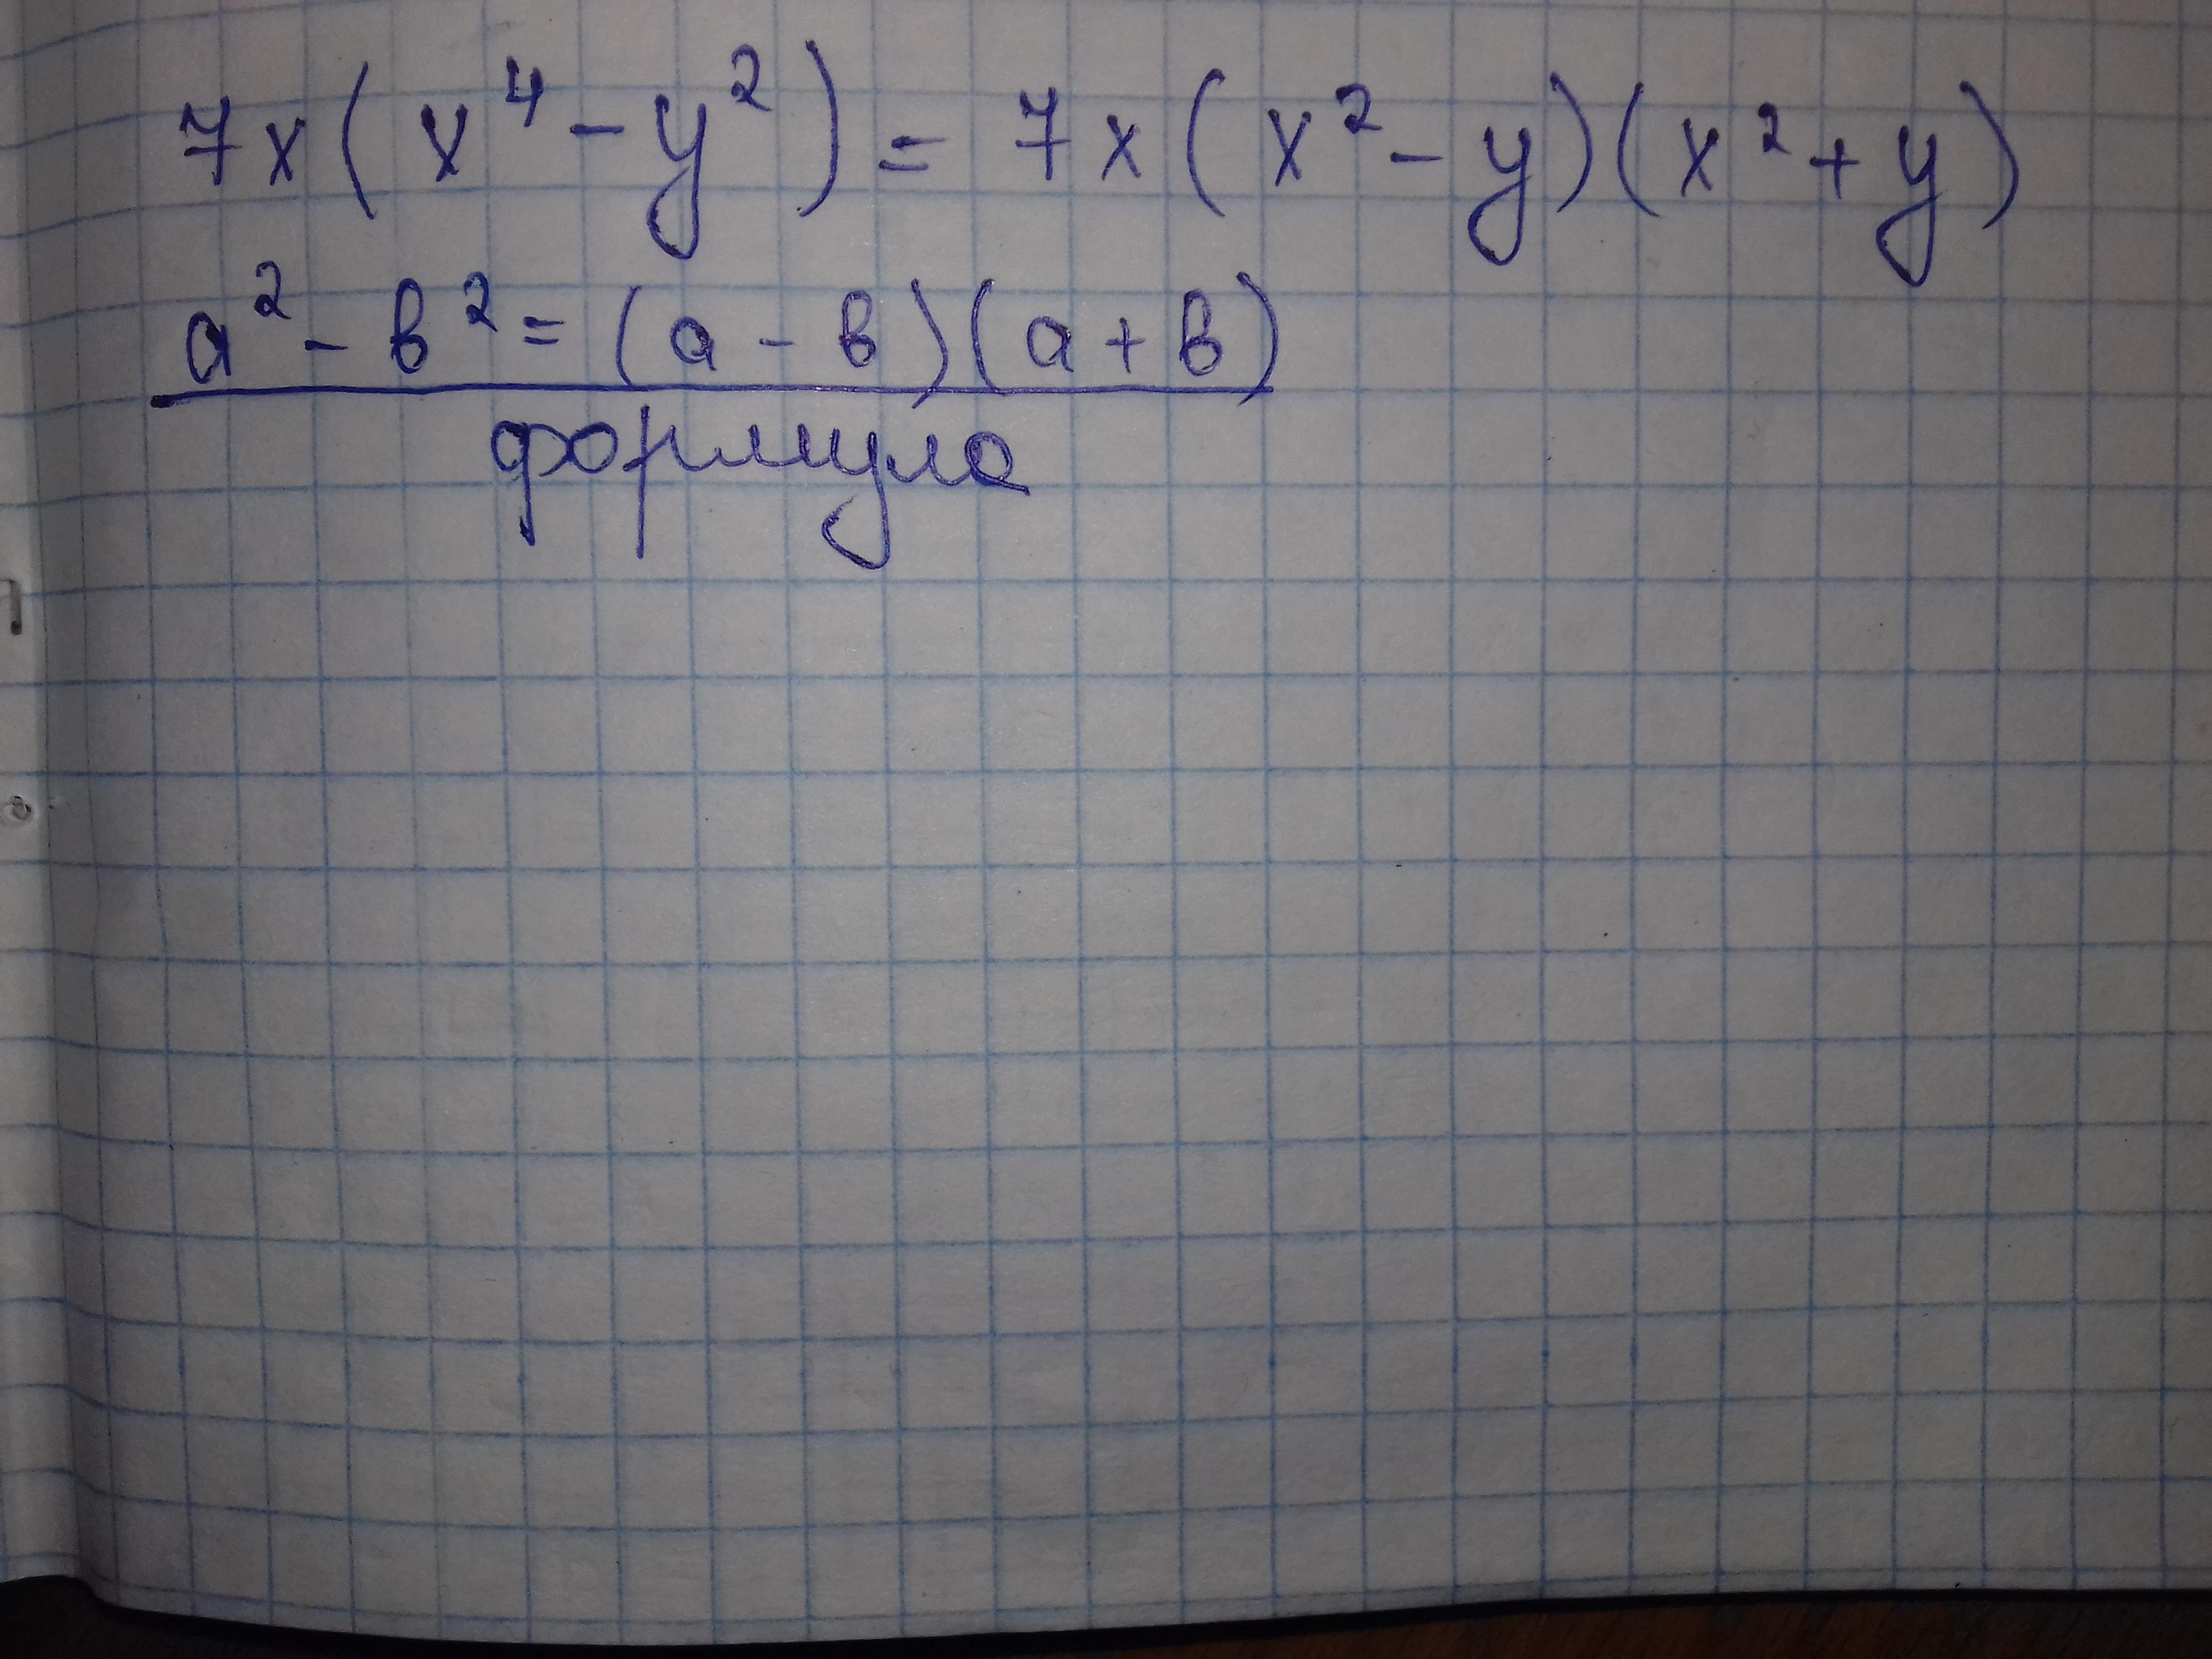 7x(x⁴-y²)=7x(x²-y)(x²+y)
a²-в²=(a-в)(a+в)
формула